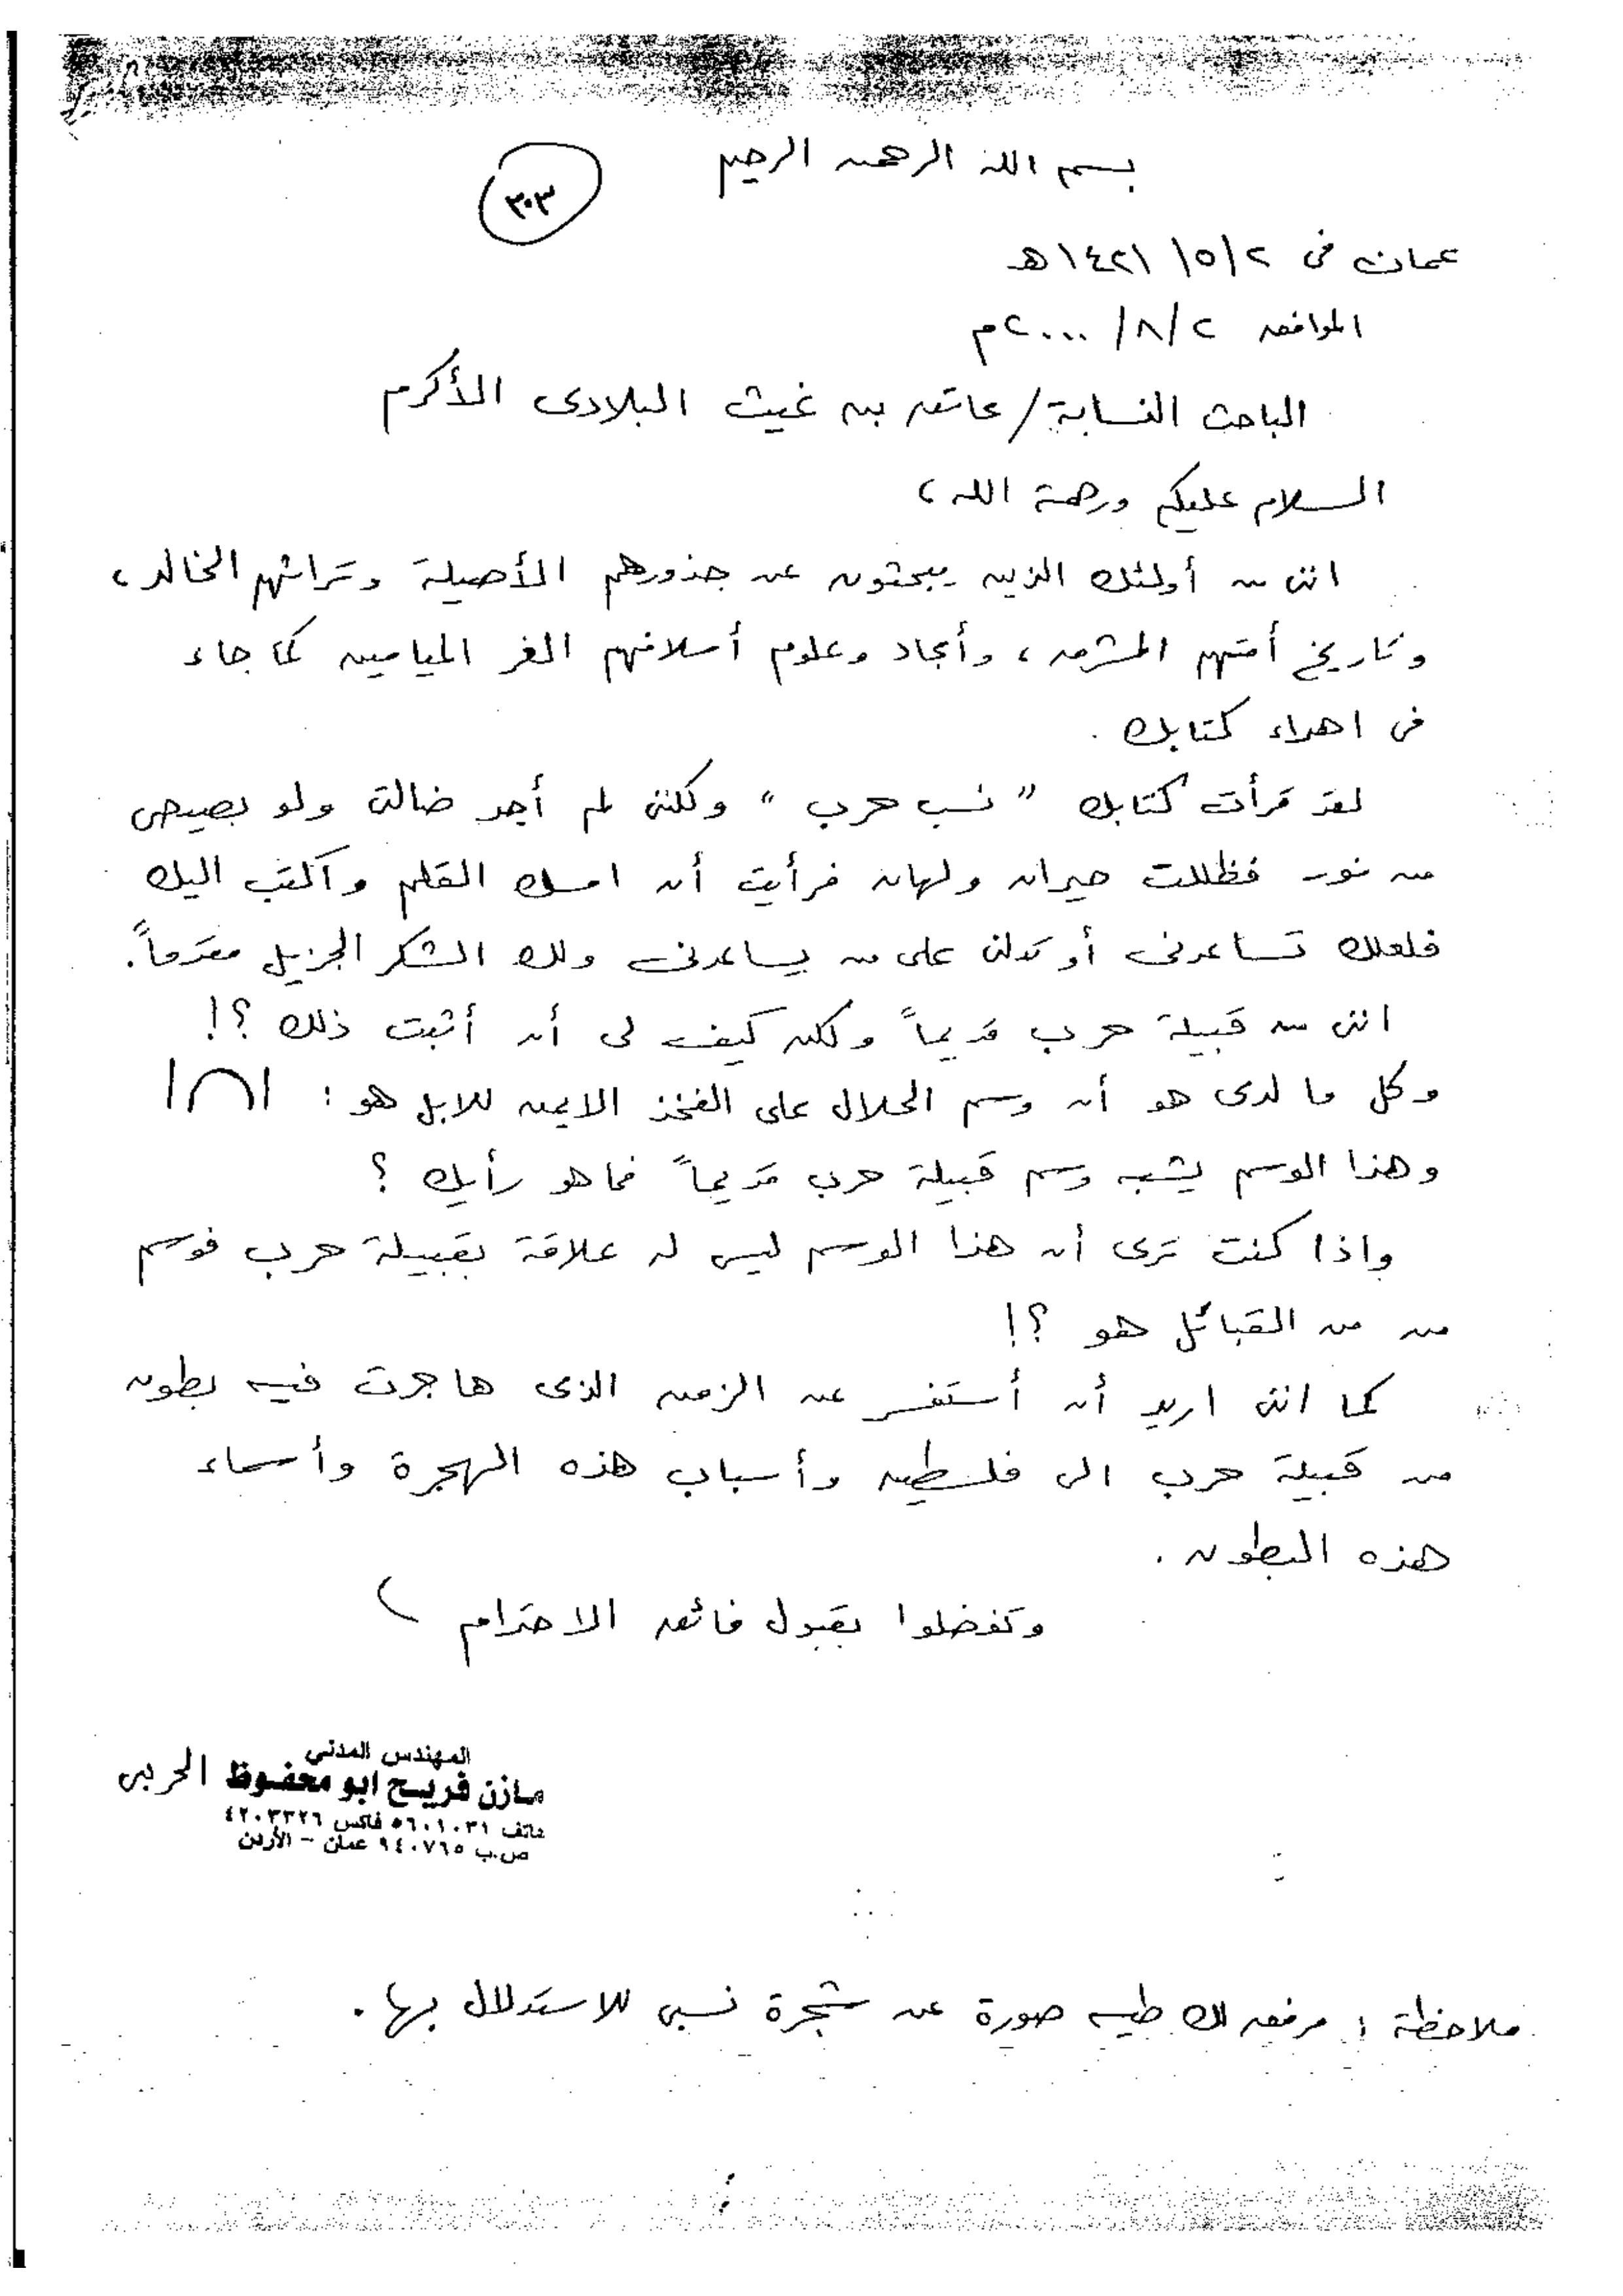 بسم الله الرحمن الرحيم
٣٠٣
عمان في ٢/٥/١٤٢١هـ
الموافق ٢/٨/٢٠٠٠م
الباحث النسابة/عاتق بن غيث البلادي الأكرم
السلام عليكم ورحمة الله،
انني من أولئك الذين يبحثون عن جذورهم الأصيلة وتراثهم الخالد،
وتاريخ أمتهم المشرق، وأمجاد وعلوم أسلافهم الغر الميامين كما جاء
في اهداء كتابك.
لقد قرأت كتابك "نسب حرب" ولكنني لم أجد ضالتي ولو بصيص
من نور فظللت حيران ولهان فرأيت أن امسك القلم وأكتب اليك
فلعلك تساعدني أو تدلني على من يساعدني ولك الشكر الجزيل مقدماً.
انني من قبيلة حرب قديماً ولكن كيف لي أن أثبت ذلك ؟!
وكل ما لدى هو أن وسم الحلال على الفخذ الايمن للابل هو : ا∩ا
وهذا الوسم يشبه وسم قبيلة حرب قديماً فما هو رأيك ؟
واذا كنت ترى أن هذا الوسم ليس له علاقة بقبيلة حرب فوسم
من من القبائل هو ؟!
كما انني اريد أن أستفسر عن الزمن الذي هاجرت فيه بطون
من قبيلة حرب الى فلسطين وأسباب هذه الهجرة وأسماء
هذه البطون.
وتفضلوا بقبول فائق الاحترام
المهندس المدني
مازن فريح ابو محفوظ الحربي
هاتف ٥٦٠١٠٣١ فاكس ٤٢٠٣٣٢٦
ص.ب ٩٤٠٧٦٥ عمان - الأردن
ملاحظة : مرفق لك طيه صورة عن شجرة نسبي للاستدلال بها.